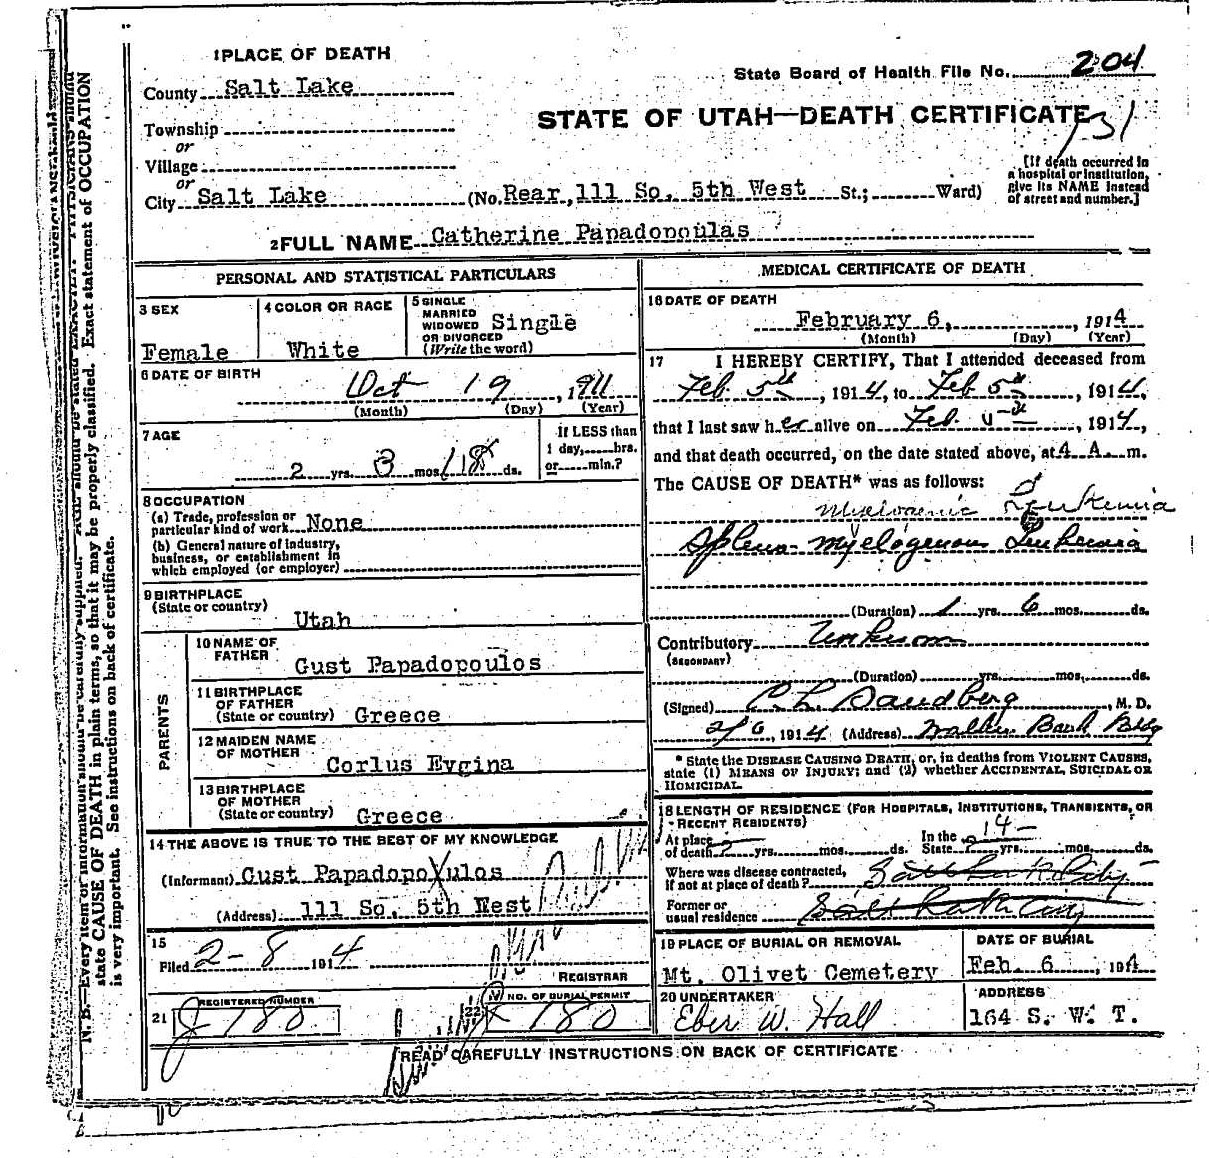 1 PLACE OF DEATH
County Salt Lake
State Board of Health File No. 204
STATE OF UTAH—DEATH CERTIFICATE
131
Township
or
Village
or
City Salt Lake (No. Rear, 111 So, 5th West St.; Ward)
[If death occurred in
a hospital or institution,
give its NAME instead
of street and number.]
2 FULL NAME Catherine Papadopoulas
PERSONAL AND STATISTICAL PARTICULARS
3 SEX
Female
4 COLOR OR RACE
White
5 SINGLE
MARRIED
WIDOWED
OR DIVORCED
(Write the word)
Single
6 DATE OF BIRTH
Oct 19, 1911
(Month) (Day) (Year)
7 AGE
2 yrs. 3 mos. 18 ds.
If LESS than
1 day, hrs.
or min.?
8 OCCUPATION
(a) Trade, profession or
particular kind of work None
(b) General nature of industry,
business, or establishment in
which employed (or employer)
9 BIRTHPLACE
(State or country)
Utah
PARENTS
10 NAME OF
FATHER
Gust Papadopoulos
11 BIRTHPLACE
OF FATHER
(State or country) Greece
12 MAIDEN NAME
OF MOTHER
Corlus Evgina
13 BIRTHPLACE
OF MOTHER
(State or country) Greece
14 THE ABOVE IS TRUE TO THE BEST OF MY KNOWLEDGE
(Informant) Gust Papadopoxulos
(Address) 111 So, 5th West
15
Filed 2-8 1914
REGISTRAR
21 REGISTERED NUMBER
J 180
22 NO. OF BURIAL PERMIT
180
MEDICAL CERTIFICATE OF DEATH
16 DATE OF DEATH
February 6, , 1914
(Month) (Day) (Year)
17 I HEREBY CERTIFY, That I attended deceased from
Feb. 5th, 1914, to Feb 5th, 1914,
that I last saw her alive on Feb. , 1914,
and that death occurred, on the date stated above, at 4 A. m.
The CAUSE OF DEATH* was as follows:
Myelogenic Leukemia
Spleno-myelogenous Leukemia
(Duration) 1 yrs. 6 mos. ds.
Contributory Unknown
(SECONDARY)
(Duration) yrs. mos. ds.
(Signed) C. L. Sandberg, M. D.
2/6, 1914 (Address) Walker Bank Bldg
* State the DISEASE CAUSING DEATH, or, in deaths from VIOLENT CAUSES,
state (1) MEANS OF INJURY; and (2) whether ACCIDENTAL, SUICIDAL OR
HOMICIDAL.
18 LENGTH OF RESIDENCE (FOR HOSPITALS, INSTITUTIONS, TRANSIENTS, OR
RECENT RESIDENTS)
At place
of death yrs. mos. ds.
In the
State yrs. mos. ds.
Where was disease contracted,
if not at place of death? Salt Lake City
Former or
usual residence Salt Lake City
19 PLACE OF BURIAL OR REMOVAL
Mt. Olivet Cemetery
DATE OF BURIAL
Feb. 6 , 1914
20 UNDERTAKER
Eber W. Hall
ADDRESS
164 S. W. T.
READ CAREFULLY INSTRUCTIONS ON BACK OF CERTIFICATE
N. B.—Every item of information should be carefully supplied. AGE should be stated EXACTLY. PHYSICIANS should
state CAUSE OF DEATH in plain terms, so that it may be properly classified. Exact statement of OCCUPATION
is very important. See instructions on back of certificate.